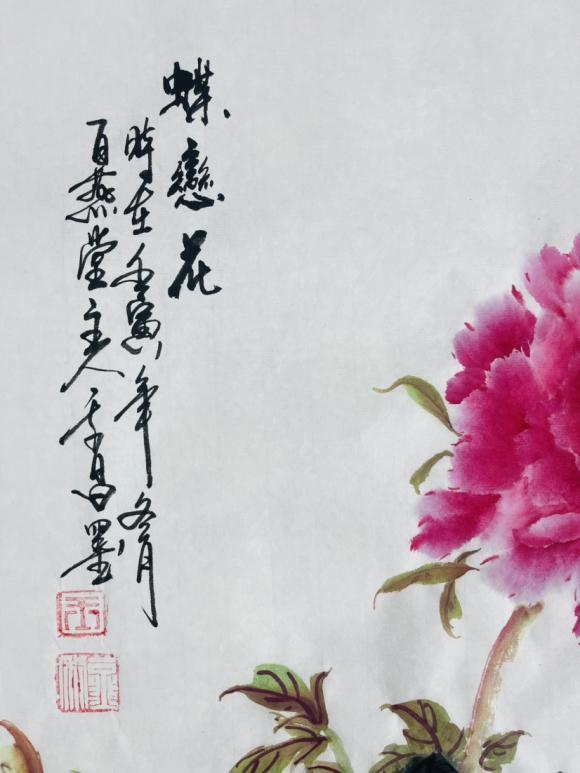 蝶戀花
時在壬寅年冬月
百燕堂主人昌墨